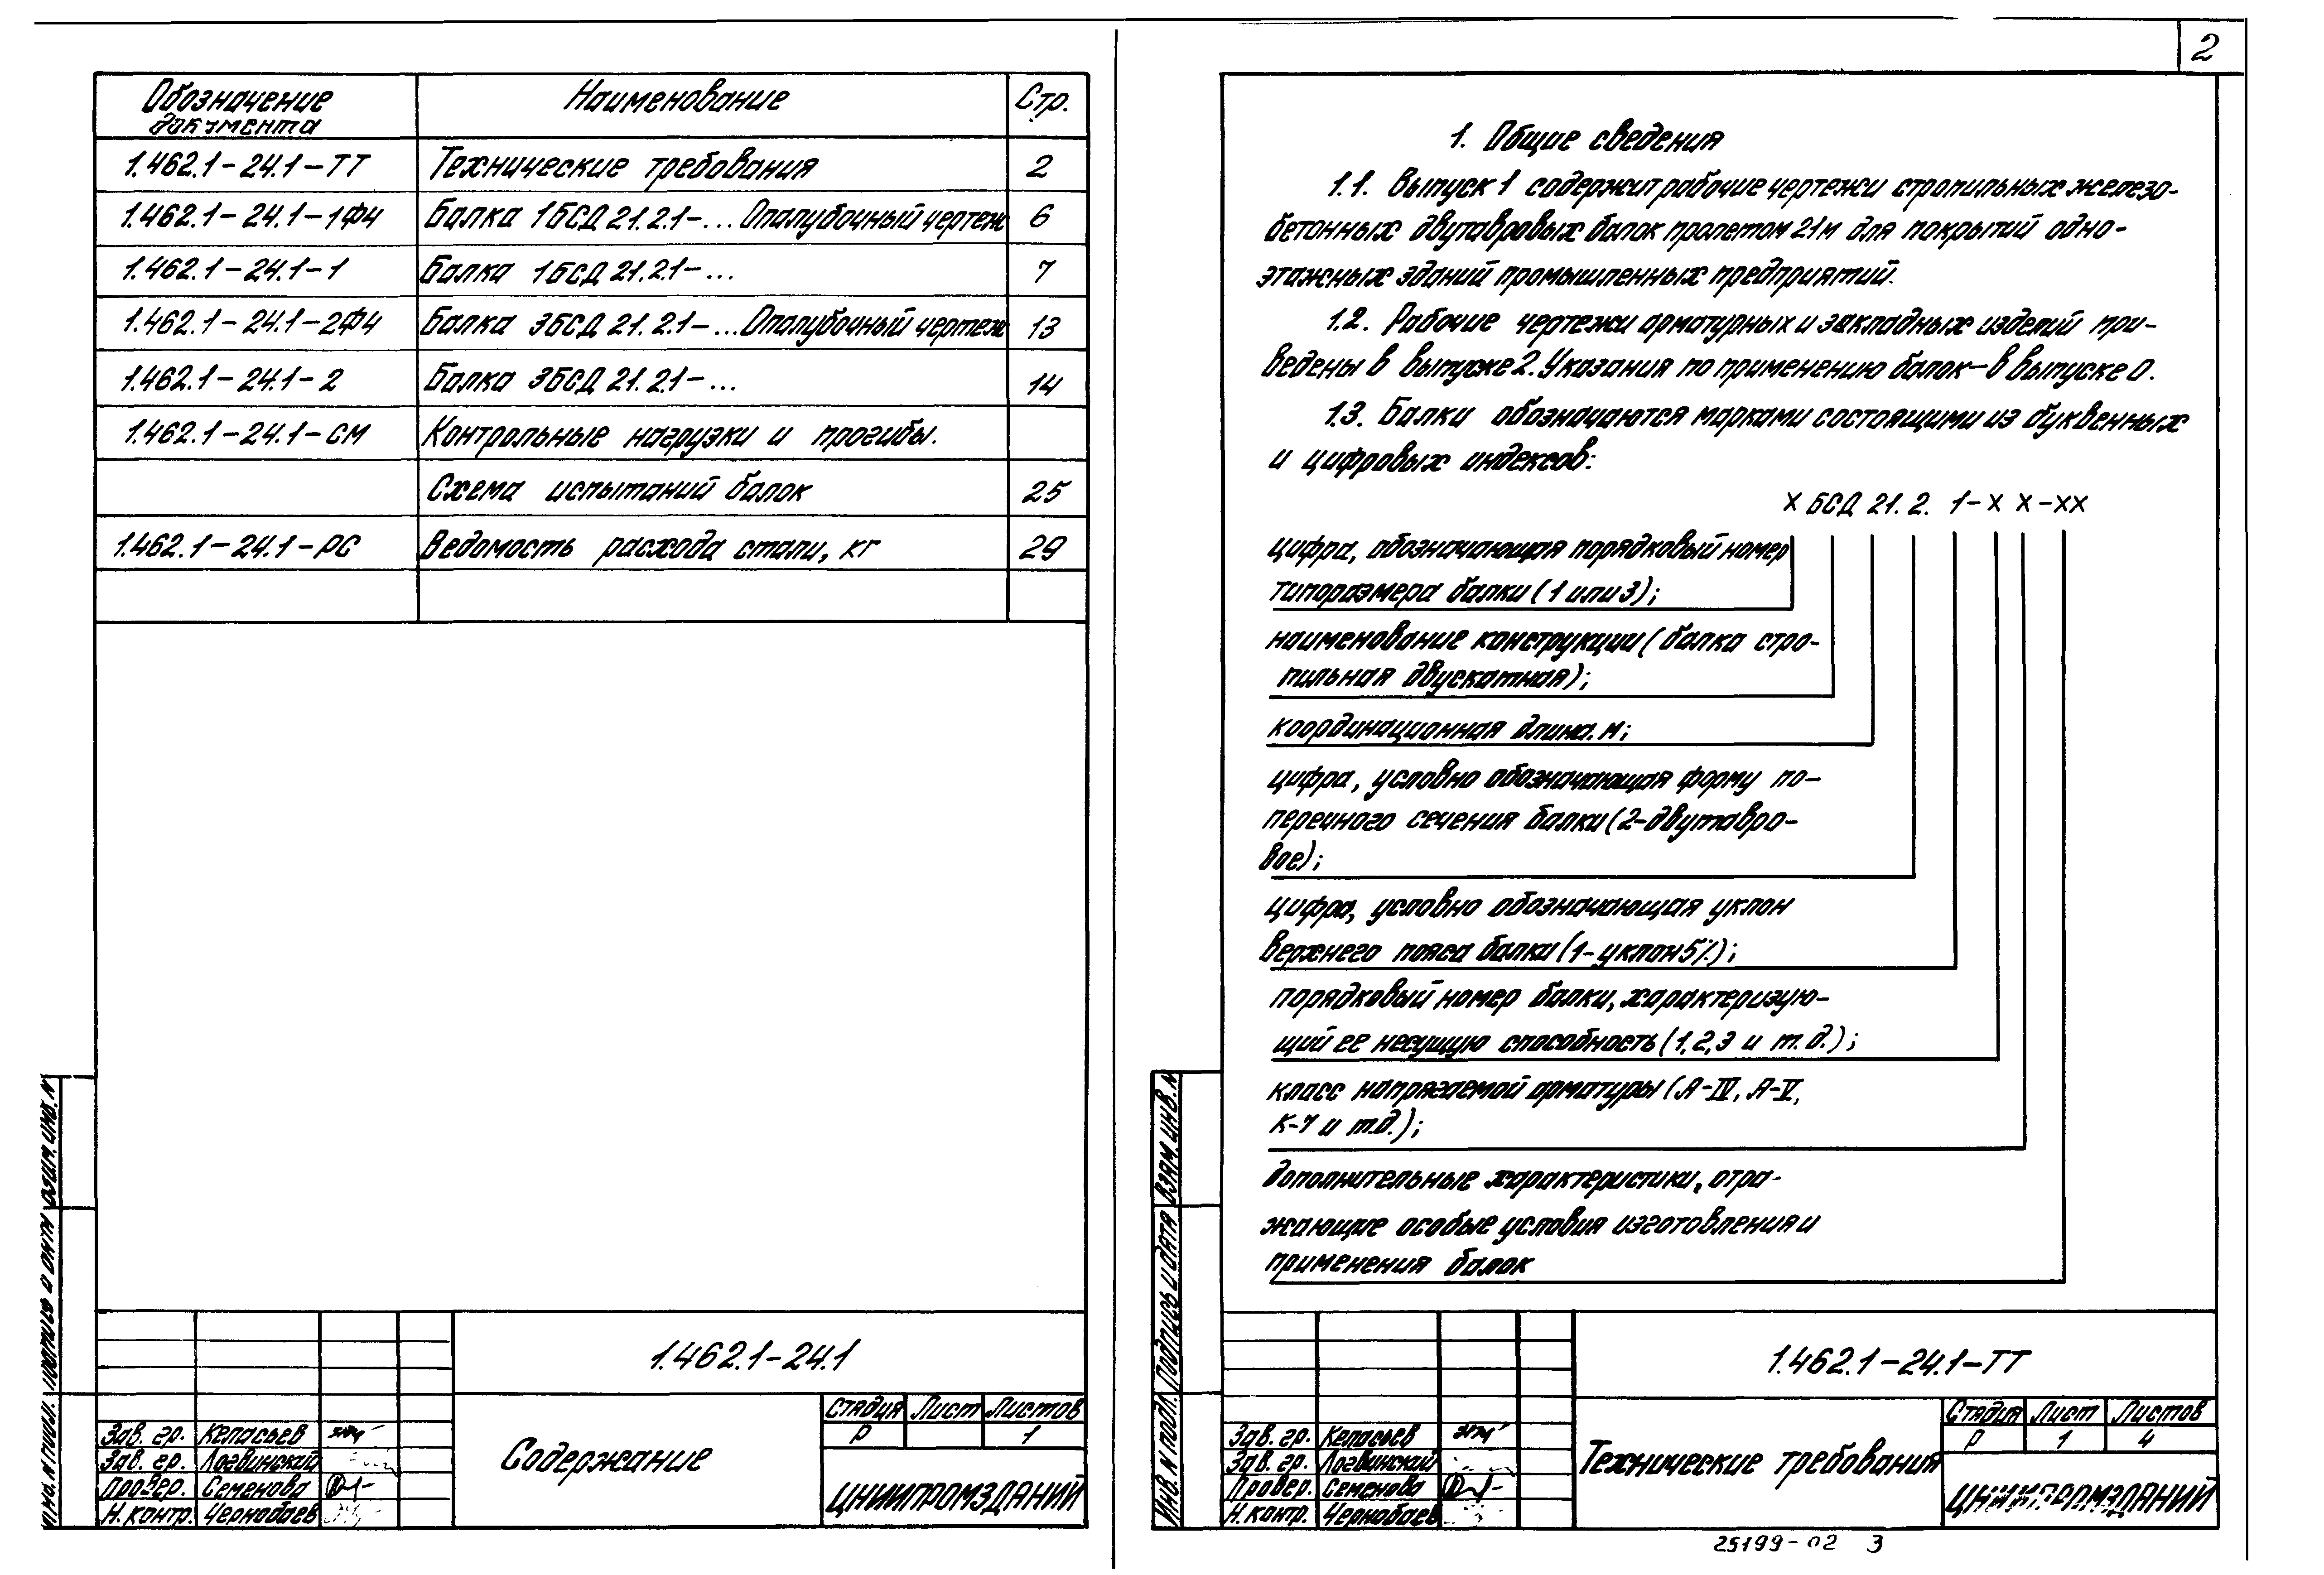 Обозначение документа Наименование Стр.
1.462.1-24.1-ТТ Технические требования 2
1.462.1-24.1-1Ф4 Балка 1БСД 21.2.1-... Опалубочный чертеж 6
1.462.1-24.1-1 Балка 1БСД 21.2.1-... 7
1.462.1-24.1-2Ф4 Балка 3БСД 21.2.1-... Опалубочный чертеж 13
1.462.1-24.1-2 Балка 3БСД 21.2.1-... 14
1.462.1-24.1-СМ Контрольные нагрузки и прогибы.
Схема испытаний балок 25
1.462.1-24.1-РС Ведомость расхода стали, кг 29
1.462.1-24.1
Содержание
Стадия Лист Листов
Р 1
ЦНИИПРОМЗДАНИЙ
Зав. гр. Келасьев
Зав. гр. Логвинский
Провер. Семенова
Н. контр. Чернобаев
Инв. N подл. Подпись и дата Взам. инв. N
2
1. Общие сведения
1.1. Выпуск 1 содержит рабочие чертежи стропильных железо-
бетонных двутавровых балок пролетом 21м для покрытий одно-
этажных зданий промышленных предприятий.
1.2. Рабочие чертежи арматурных и закладных изделий при-
ведены в выпуске 2. Указания по применению балок - в выпуске 0.
1.3. Балки обозначаются марками состоящими из буквенных
и цифровых индексов:
Х БСД 21. 2. 1-Х Х-ХХ
цифра, обозначающая порядковый номер
типоразмера балки (1 или 3);
наименование конструкции (балка стро-
пильная двускатная);
координационная длина. м;
цифра, условно обозначающая форму по-
перечного сечения балки (2-двутавро-
вое);
цифра, условно обозначающая уклон
верхнего пояса балки (1-уклон 5%);
порядковый номер балки, характеризую-
щий ее несущую способность (1,2,3 и т.д.);
класс напрягаемой арматуры (А-IV, А-V,
К-7 и т.д.);
дополнительные характеристики, отра-
жающие особые условия изготовления и
применения балок
1.462.1-24.1-ТТ
Технические требования
Стадия Лист Листов
Р 1 4
ЦНИИПРОМЗДАНИЙ
Зав. гр. Келасьев
Зав. гр. Логвинский
Провер. Семенова
Н. контр. Чернобаев
Инв. N подл. Подпись и дата Взам. инв. N
25199-02 3